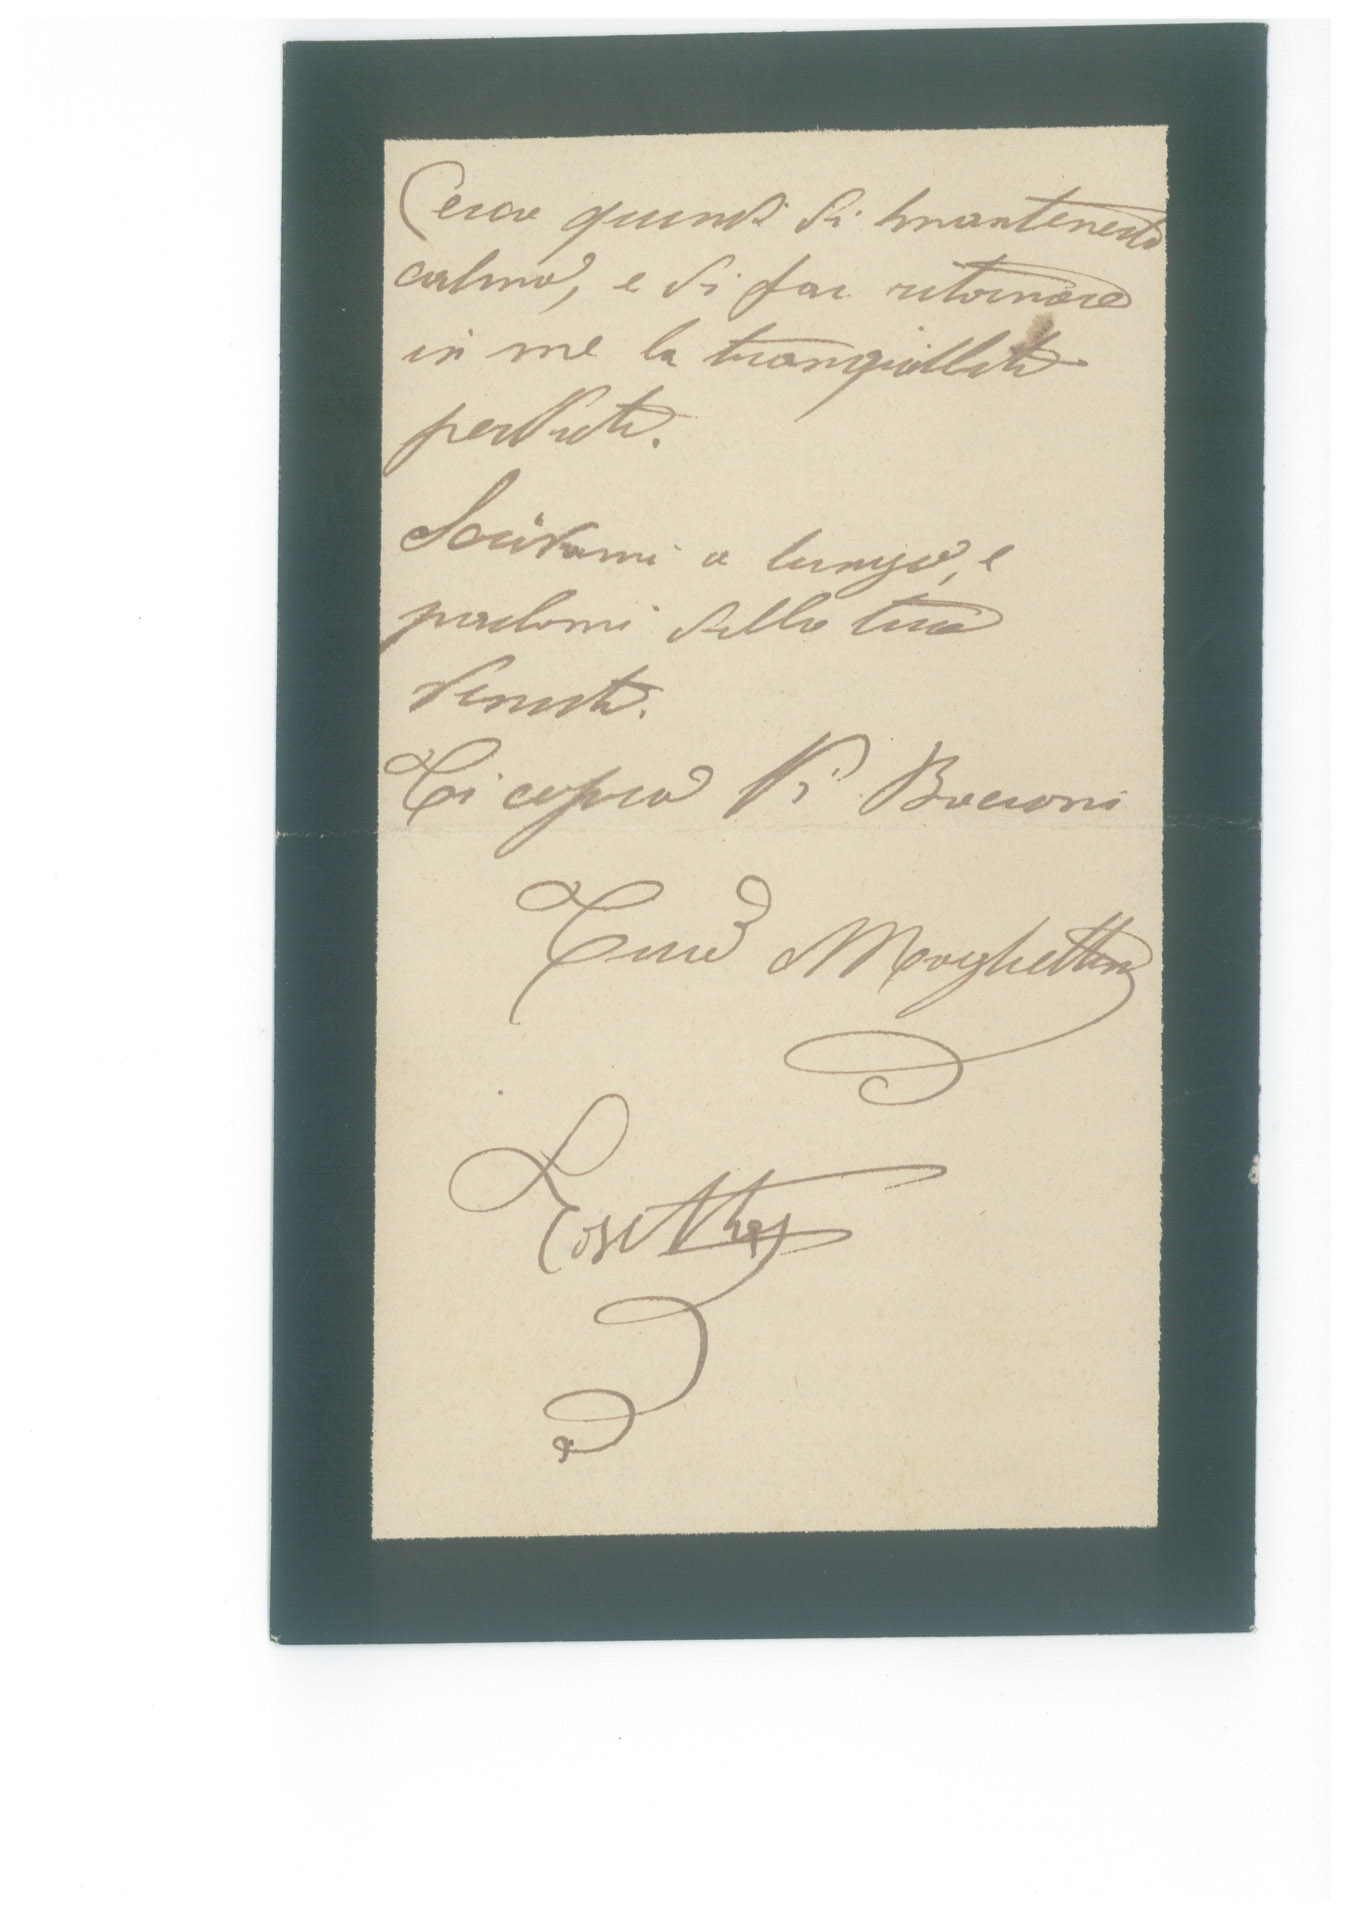 Cerca quindi di mantenerti
calmo, e di far ritornare
in me la tranquillità
perduta.
Scrivami a lungo, e
parlami della tua
venuta.
Ti copro di Bacioni
Tua Moghettina
Rosetta